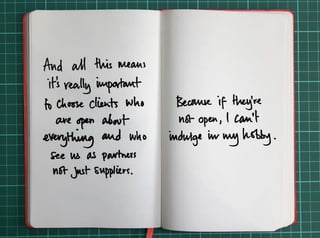 And all this means
it's really important
to choose clients who
are open about
everything and who
see us as partners
not just suppliers.
Because if they're
not open, I can't
indulge in my hobby.